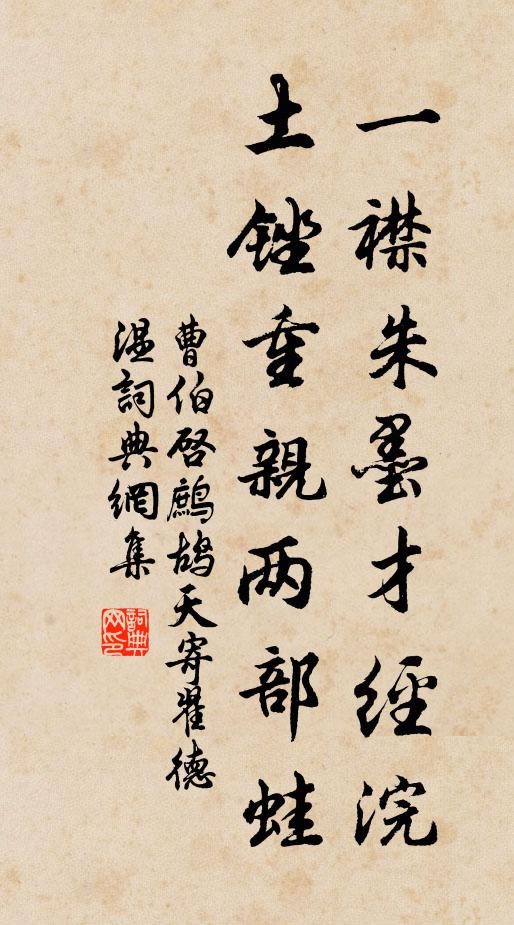 一襟朱墨才經浣
土銼重親两部蛙
曹伯啓鷓鴣天寄翟德
温詞典網集
詞典网印